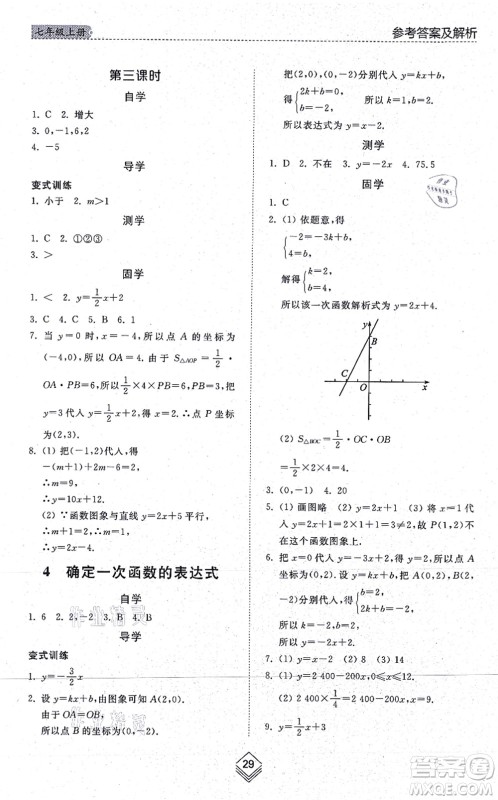 七年级上册
参考答案及解析
第三课时
自学
1. C 2. 增大
3. 0,-1,6,2
4. -5
导学
变式训练
1. 小于 2. m>1
测学
1. C 2. ①②③
3. >
固学
1. < 2. y=1/2x+2
3. C 4. C 5. B 6. 1
7. 当 y=0 时,x=-4,所以点 A 的坐标为
(-4,0),所以 OA=4. 由于 S△AOP=1/2·
OA·PB=6,所以1/2×4×PB=6,所以
PB=3. 代入函数关系式,得点 P 的坐标
为(2,3).
8. (1) 把(-1,2)代入,得
-(m+1)+2m-6=2.
∴m=9.
(2) ∵函数图象与直线 y=2x+5 平行,
∴m+1=2. ∴m=1.
∴y=2x-4.
4 确定一次函数的表达式
自学
1. 6 2. 2,-2 3. B 4. B
导学
变式训练
1. y=-3/2x
2. 设 y=kx+b,由图象可知 A(2,0).
由于 OA=OB,
所以点 B 的坐标为(0,-2).
把(2,0),(0,-2)分别代入 y=kx+b,
得{2k+b=0, b=-2. 所以{k=1, b=-2.
所以表达式为 y=x-2.
测学
1. D 2. 不在 3. y=-2x 4. 75.5
固学
1. C
2. (1) 依题意,得
{-2=-3k+b, 6=k+b,
解得{k=2, b=4.
所以该一次函数解析式为 y=2x+4.
y
B
C
O
x
(2) S△BOC=1/2·OC·OB
=1/2×2×4=4.
3. (0,-1) 4. 20
5. (1) 画图略 (2) y=2x+1 (3) (-4,3)
不在这个函数图象上.
6. 把 x=0 代入 y=x+2,得 y=2,所以点 B
坐标为(0,2).
∴b=2, ∴k=-2.
∴y=-2x+2.
7. (1) y=x-2 (2) 7 (3) 14
8. (1) y=2 400-200x,0≤x≤12.
(2) 2 400×1/4=2 400-200x,x=9.
9. y=1/2x+3
29